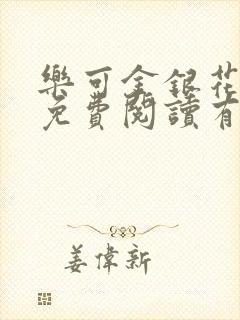 樂可金銀花
免費閱讀有
姜偉新